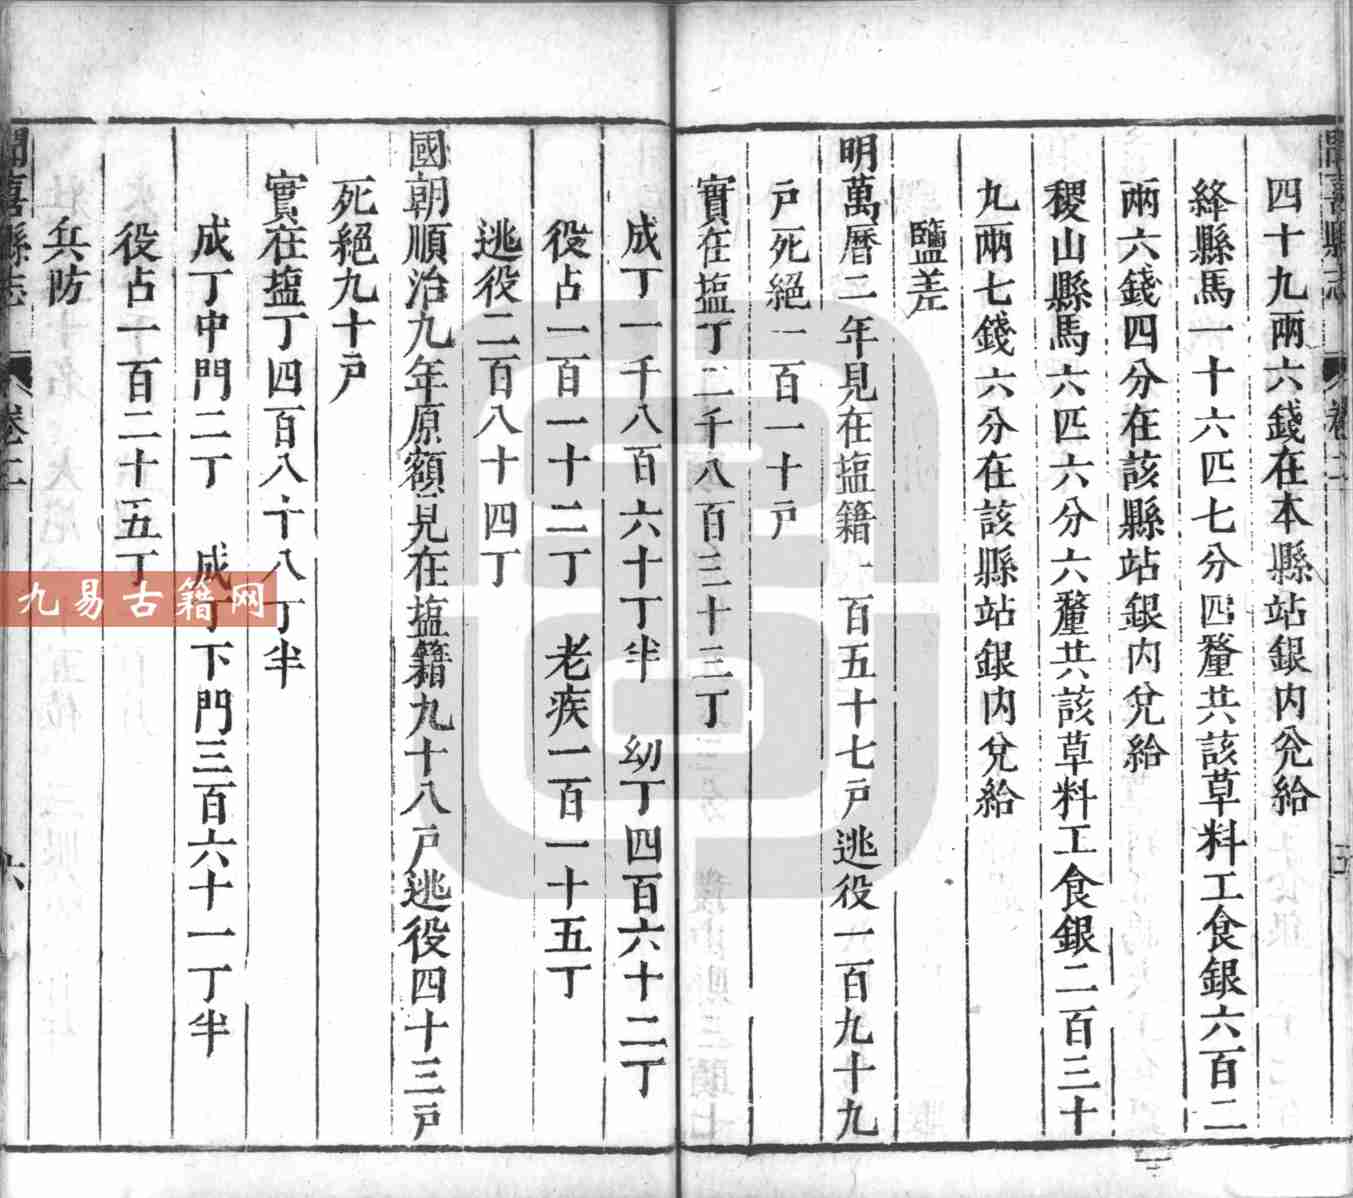 聞喜縣志 卷二
四十九兩六錢在本縣站銀内兊給
絳縣馬一十六匹七分四釐共該草料工食銀六百二
兩六錢四分在該縣站銀内兊給
稷山縣馬六匹六分六釐共該草料工食銀二百三十
九兩七錢六分在該縣站銀内兊給
鹽差
明萬曆二年見在塩籍一百五十七戸逃役一百九十九
戸死絕一百一十戸
實在塩丁二千八百三十三丁
成丁一千八百六十丁半 㓜丁四百六十二丁
役占一百一十二丁 老疾一百一十五丁
逃役二百八十四丁
國朝順治九年原額見在塩籍九十八戸逃役四十三戸
死絕九十戸
實在塩丁四百八十八丁半
成丁中門二丁 成丁下門三百六十一丁半
役占一百二十五丁
兵防
聞喜縣志 卷二 六
九易古籍网